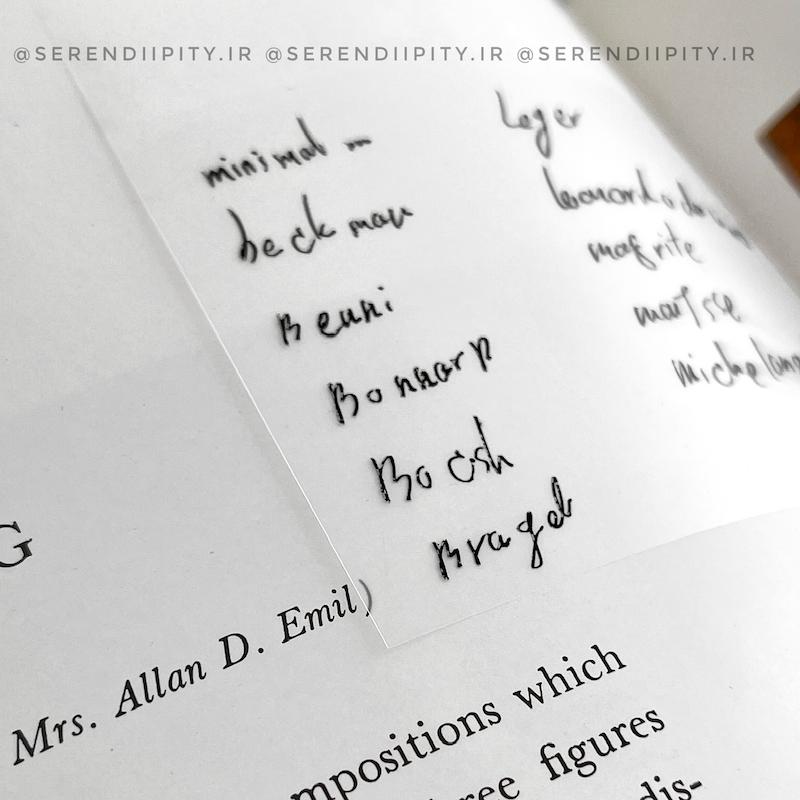 @SERENDIIPITY.IR @SERENDIIPITY.IR @SERENDIIPITY.IR
minimal m
beckman
Benni
Bonnarp
Bocsh
Braqel
Leger
magrite
matsse
G
Mrs. Allan D. Emil)
mpositions which
ree figures
dis-